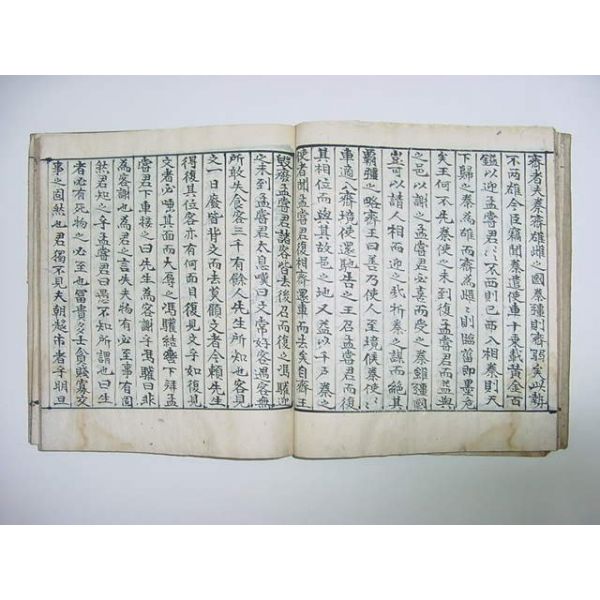 齊者夫秦齊雄雌之國秦彊則齊弱矣此勢
不兩雄今臣竊聞秦遣使車十乘載黃金百
鎰以迎孟嘗君〻〻〻不西則已西入相秦則天
下歸之秦為雄而齊為雌〻則臨菑即墨危
矣王何不先秦使之未到復孟嘗君而益與
之邑以謝之孟嘗君必喜而受之秦雖彊國
豈可以請人相而迎之哉折秦之謀而絕其
霸彊之略齊王曰善乃使人至境候秦使〻
車適入齊境使還馳告之王召孟嘗君而復
其相位而與其故邑之地又益以千戶秦之
使者聞孟嘗君復相齊還車而去矣自齊王
毀廢孟嘗君諸客皆去後召而復之馮驩迎
之未到孟嘗君太息嘆曰文常好客遇客無
所敢失食客三千有餘人先生所知也客見
文一日廢皆背文而去莫顧文者今賴先生
得復其位客亦有何面目復見文乎如復見
文者必唾其面而大辱之馮驩結轡下拜孟
嘗君下車接之曰先生為客謝乎馮驩曰非
為客謝也為君之言失夫物有必至事有固
然君知之乎孟嘗君曰愚不知所謂也曰生
者必有死物之必至也富貴多士貧賤寡友
事之固然也君獨不見夫朝趨市者乎明旦